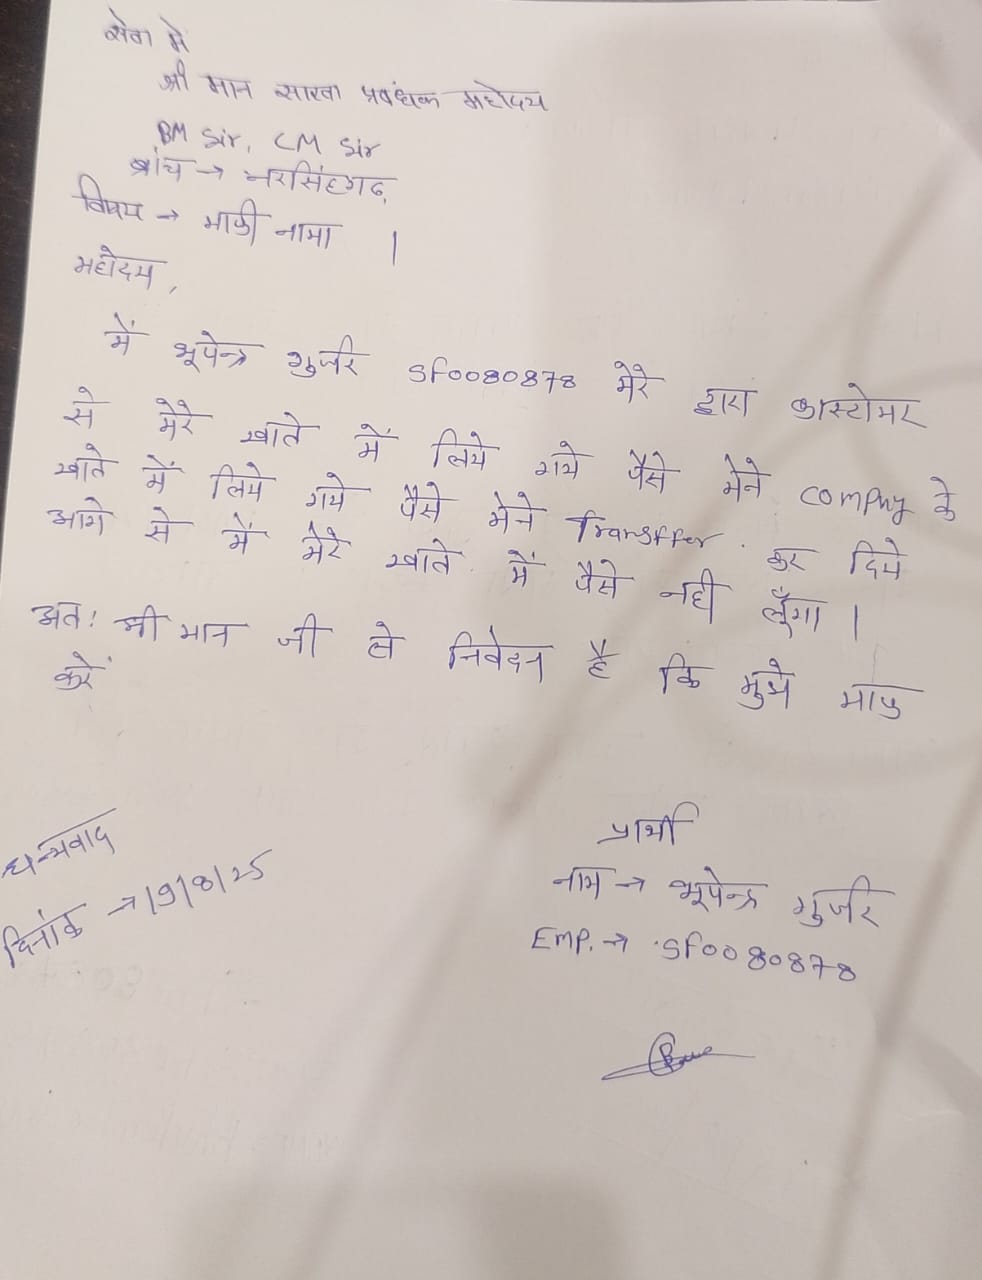 सेवा मे
श्री मान साखा प्रबंधक महोदय
BM Sir, CM Sir
ब्रांच → नरसिंहगढ़
विषय → माफी नामा ।
महोदय,
में भूपेन्द्र गुर्जर Sf0080878 मेरे द्वारा कास्टोमर
से मेरे खाते में लिये गये पैसे मेने Compny के
खाते में लिये गये पैसे मेने Transffer. कर दिये
आगे से में मेरे खाते में पैसे नही लूँगा ।
अत: श्री मान जी से निवेदन है कि मुझे माफ
करें
धन्यवाद
दिनांक → 19/8/25
प्रार्थी
नाम → भूपेन्द्र गुर्जर
EMP. → Sf0080878